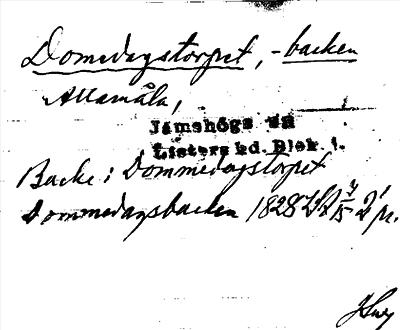 Domedagstorpet, -backen
Allamåla,
Jämshögs sn
Listers hd. Blek. l.
Backe i Dommedagstorpet
Dommedagsbacken 1828